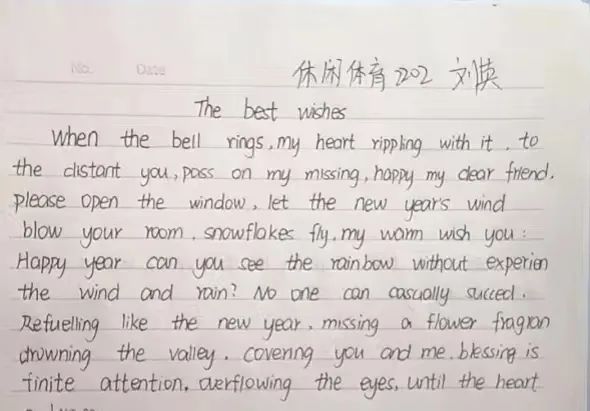 No. Date
休闲体育2202 刘英
The best wishes
When the bell rings, my heart rippling with it, to
the distant you, pass on my missing, happy my dear friend.
please open the window, let the new year's wind
blow your room, snowflakes fly, my warm wish you:
Happy year can you see the rainbow without experien
the wind and rain? No one can casually succed.
Refuelling like the new year, missing a flower fragran
drowning the valley, covering you and me, blessing is
finite attention, overflowing the eyes, until the heart